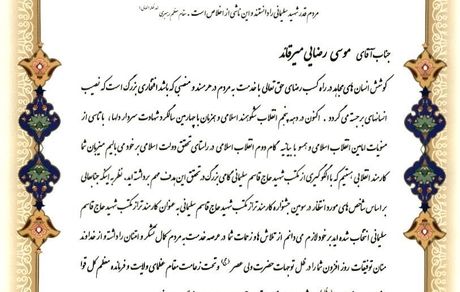 مردم قدر شهید سلیمانی را دانستند و این ناشی از اخلاص است . مقام معظم رهبری
جناب آقای موسی رضایی میرقائد
کوشش انسان های مجاهد در راه کسب رضای حق تعالی با خدمت به مردم در هر مسند و منصبی که باشد افتخاری بزرگ است که نصیب
انسانهای برجسته می گردد . اکنون در دهه پنجم انقلاب شکوهمند اسلامی و همزمان با چهارمین سالگرد شهادت سردار دلها، با تاسی از
منویات امامین انقلاب اسلامی و همسو با بیانیه گام دوم انقلاب اسلامی در راستای تحقق دولت اسلامی بر خود می بالیم میزبان شما
کارمند انقلابی هستیم که با الگوگیری از مکتب شهید حاج قاسم سلیمانی گامی بزرگ در تحقق این هدف مهم برداشته اید. نظر به اینکه جنابعالی
بر اساس شاخص های مورد انتظار در سومین جشنواره کارمند تراز مکتب شهید حاج قاسم سلیمانی به عنوان کارمند تراز مکتب شهید حاج قاسم
سلیمانی انتخاب شده اید بر خود لازم می دانم از تلاش ها و زحمات شما در عرصه خدمت به مردم کمال تشکر و امتنان را داشته و از خداوند
منان توفیقات روز افزون شما را در ظل توجهات حضرت ولی عصر (عج) و تحت زعامت مقام عظمای ولایت و فرمانده معظم کل قوا